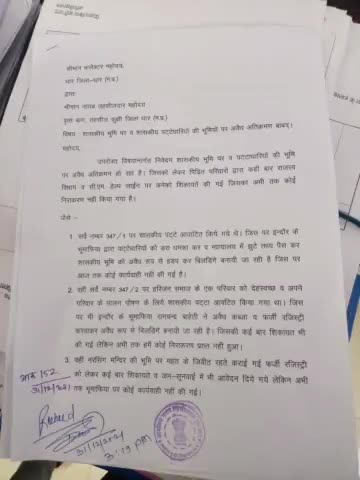 श्रीमान कलेक्टर महोदय,
धार जिला-धार (म.प्र.)
द्वारा
श्रीमान नायब तहसीलदार महोदय
वृत्त बाग, तहसील कुक्षी जिला धार (म.प्र.)
विषय – शासकीय भूमि पर व शासकीय पट्टेधारियों की भूमियों पर अवैध अतिक्रमण बाबद्।
महोदय,
उपरोक्त विषयान्तर्गत निवेदन शासकीय भूमि पर व पट्टेधारियों की भूमि
पर अवैध अतिक्रमण हो रहा है। जिसको लेकर पिड़ित परिवारों द्वारा कही बार राजस्व
विभाग व सी.एम. हेल्प लाईन पर अनेको शिकायतों की गई जिसका अभी तक कोई
निराकरण नहीं किया गया है।
जैसे :-
1. सर्वे नम्बर 347/1 पर शासकीय पट्टे आवंटित किये गये थे। जिस पर इन्दौर के
भूमाफिया द्वारा पट्टेधारियों को डरा धमका कर व न्यायालय में झुटे तथ्य पैस कर
शासकीय भूमि को अवैध रूप से हड़प कर बिल्डिंगे बनायी जा रही है जिस पर
आज तक कोई कार्यवाही नहीं की गई है।
2. वहीं सर्वे नम्बर 347/2 पर हरिजन समाज के एक परिवार को देहस्वच्छ व अपने
परिवार के पालन पोषण के लिये शासकीय पट्टा आवंटित किया गया था। जिस
पर भी इन्दौर के भूमाफिया रामचन्द बाहेती ने अवैध कब्जा व फर्जी रजिस्ट्री
करवाकर अवैध रूप से बिल्डिंगे बनायी जा रही है। जिसकी कई बार शिकायत भी
की गई लेकिन अभी तक हमें कोई निराकरण प्राप्त नहीं हुआ।
3. वहीं नरसिंग मन्दिर की भूमि पर महंत के जिवीत रहते कराई गई फर्जी रजिस्ट्री
को लेकर कई बार शिकायत व जन-सुनवाई में भी आवेदन दिये गये लेकिन अभी
तक भूमाफिया पर कोई कार्यवाही नहीं की गई।
152
31/12/2021
Received
31/12/2021
3:19 PM